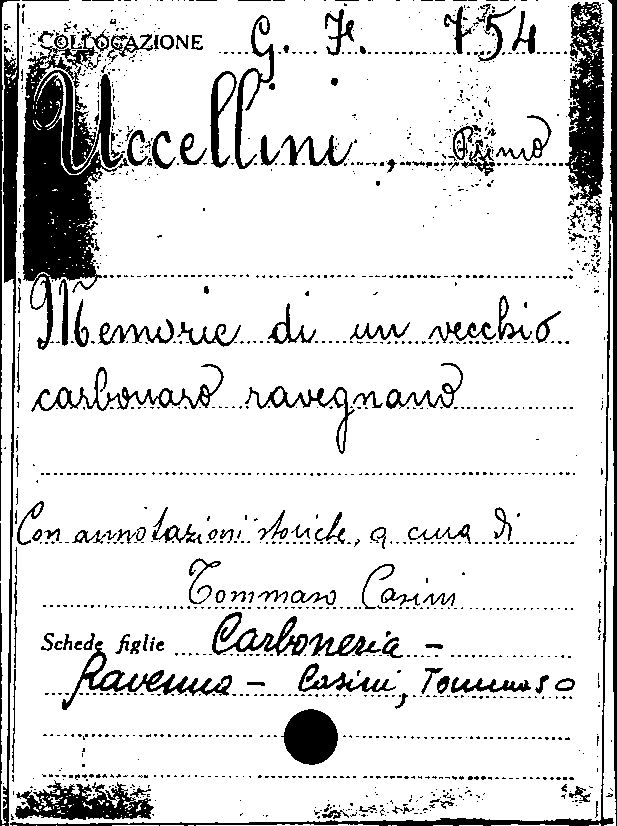 COLLOCAZIONE G. F. 754
Uccellini, Primo
Memorie di un vecchio
carbonaro ravegnano
Con annotazioni storiche, a cura di
Tommaso Casini
Schede figlie Carboneria -
Ravenna - Casini, Tommaso